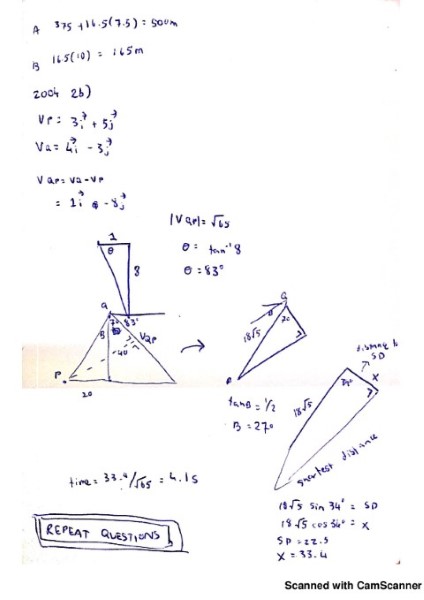 A 375 + 16.5(7.5) = 500m
B 16.5(10) = 165m
2004 2b)
Vp = 3i + 5j
Va = 4i - 3j
Vap = Va - Vp
= 1i - 8j
|Vap| = √65
1
θ
8
θ = tan⁻¹ 8
θ = 83°
Q
83°
B
40
Vap
P
20
Q
20
18√5
tanB = 1/2
B = 27°
distance to
SD
X
18√5
shortest distance
time = 33.4/√65 = 4.1s
18√5 sin 34° = SD
18√5 cos 34° = X
SD = 22.5
X = 33.4
REPEAT QUESTIONS
Scanned with CamScanner